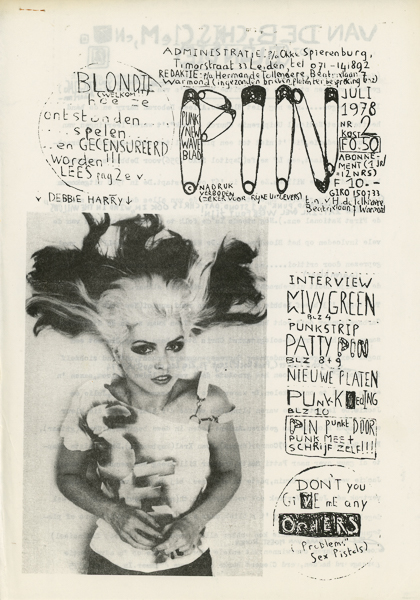 ADMINISTRATIE: p/a Okki Spierenburg,
Timorstraat 33 Leiden, tel 071-141892
REDAKTIE: p/a Herman de Tollenaere, Beatrixlaan 7
Warmond
BLONDIE
(WELKOM)
hoe ze
ontstonden....
...spelen...
..en GECENSUREERD
worden!!!
LEES pag 2e v
v DEBBIE HARRY↓
PUNK/
NEW
WAVE
BLAD
PIN
© NADRUK
VERBODEN
(ZEKER VOOR RIJKE UITGEVERS)
JULI
1978
NR. 2
KOST
F0.50
ABONNE-
MENT (1 jr)
(12 NRS)
F 10.-
GIRO
t.n.v. H. de Tollenaere,
Beatrixlaan 7 Warmond
INTERVIEW
KIVY GREEN
BLZ 4
PUNKSTRIP
PATTY PIN
BLZ 8+9
NIEUWE PLATEN
PUNK-K
BLZ 10
PIN punkt DOOR
PUNK MEE +
SCHRIJF ZELF!!!
DON'T you
GiVE mE any
OTHERS
("Problems"
Sex Pistols)